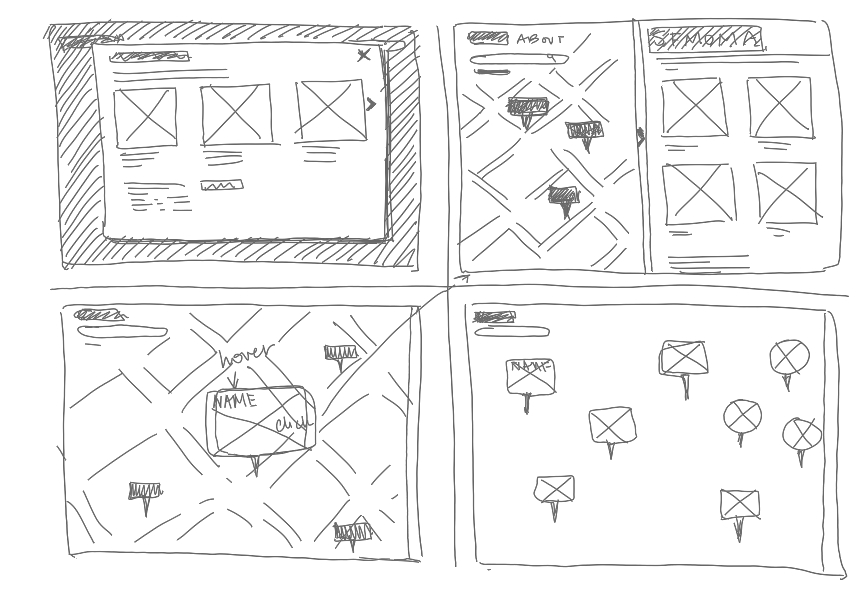 ABOUT
SFMOMA
hover
NAME
click
NAME